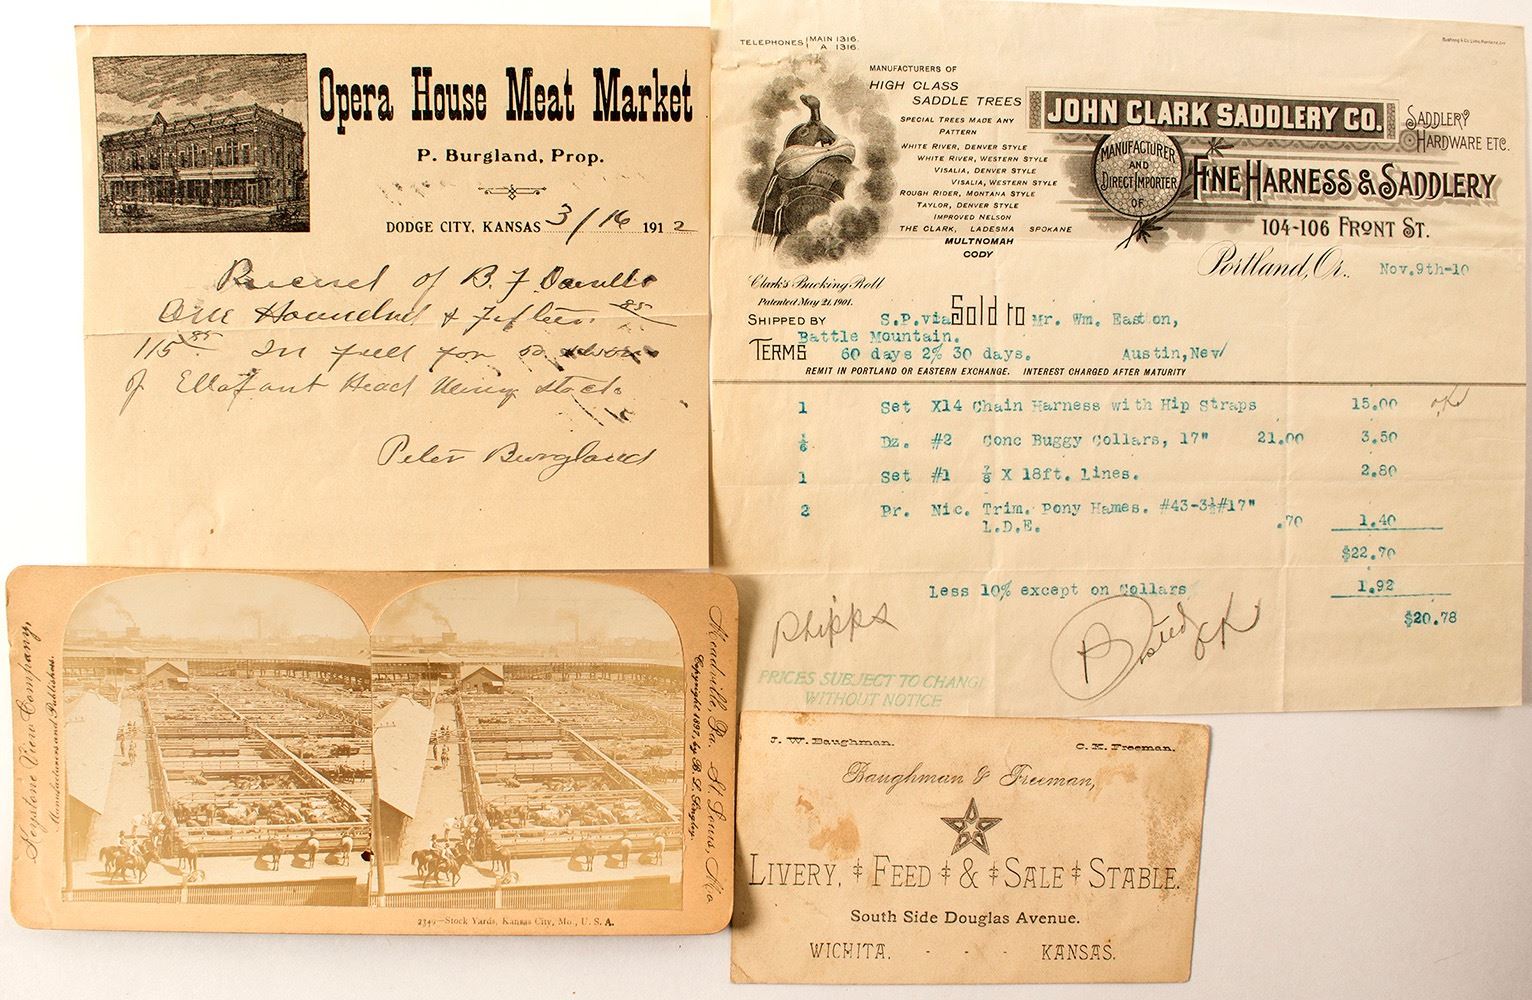 Opera House Meat Market
P. Burgland, Prop.
DODGE CITY, KANSAS 3/16 1912
of B. F.
One & Fifteen 85
115 85 In full for 50
of Head Mining stock
Peter Burgland
TELEPHONES MAIN 1316.
A 1316.
Bushong & Co.
MANUFACTURERS OF
HIGH CLASS
SADDLE TREES
SPECIAL TREES MADE ANY
PATTERN
WHITE RIVER, DENVER STYLE
WHITE RIVER, WESTERN STYLE
VISALIA, DENVER STYLE
VISALIA, WESTERN STYLE
ROUGH RIDER, MONTANA STYLE
TAYLOR, DENVER STYLE
IMPROVED NELSON
THE CLARK, LADESMA SPOKANE
MULTNOMAH
CODY
JOHN CLARK SADDLERY CO.
SADDLERY
HARDWARE ETC.
MANUFACTURER
AND
DIRECT IMPORTER
OF
FINE HARNESS & SADDLERY
104-106 FRONT ST.
Portland, Or., Nov.9th-10
Clark's Bucking Roll
Patented May 21, 1901.
SHIPPED BY S.P.via Sold to Mr. Wm. Easton,
Battle Mountain.
TERMS 60 days 2% 30 days. Austin,Nev/
REMIT IN PORTLAND OR EASTERN EXCHANGE. INTEREST CHARGED AFTER MATURITY
1 Set X14 Chain Harness with Hip Straps 15.00
1/6 Dz. #2 Conc Buggy Collars, 17" 21.00 3.50
1 Set #1 7/8 X 18ft. Lines. 2.80
2 Pr. Nic. Trim. Pony Hames. #43-3½#17"
L.D.E. .70 1.40
$22.70
Less 10% except on Collars 1.92
$20.78
Phipps
Posted
PRICES SUBJECT TO CHANGE
WITHOUT NOTICE
Keystone View Company,
Manufacturers and Publishers.
Meadville, Pa. St. Louis, Mo
Copyright 1897, by B. L. Singley.
2349—Stock Yards, Kansas City, Mo., U. S. A.
J. W. Baughman. C. K. Freeman.
Baughman & Freeman,
LIVERY, FEED & SALE STABLE.
South Side Douglas Avenue.
WICHITA, - - - KANSAS.